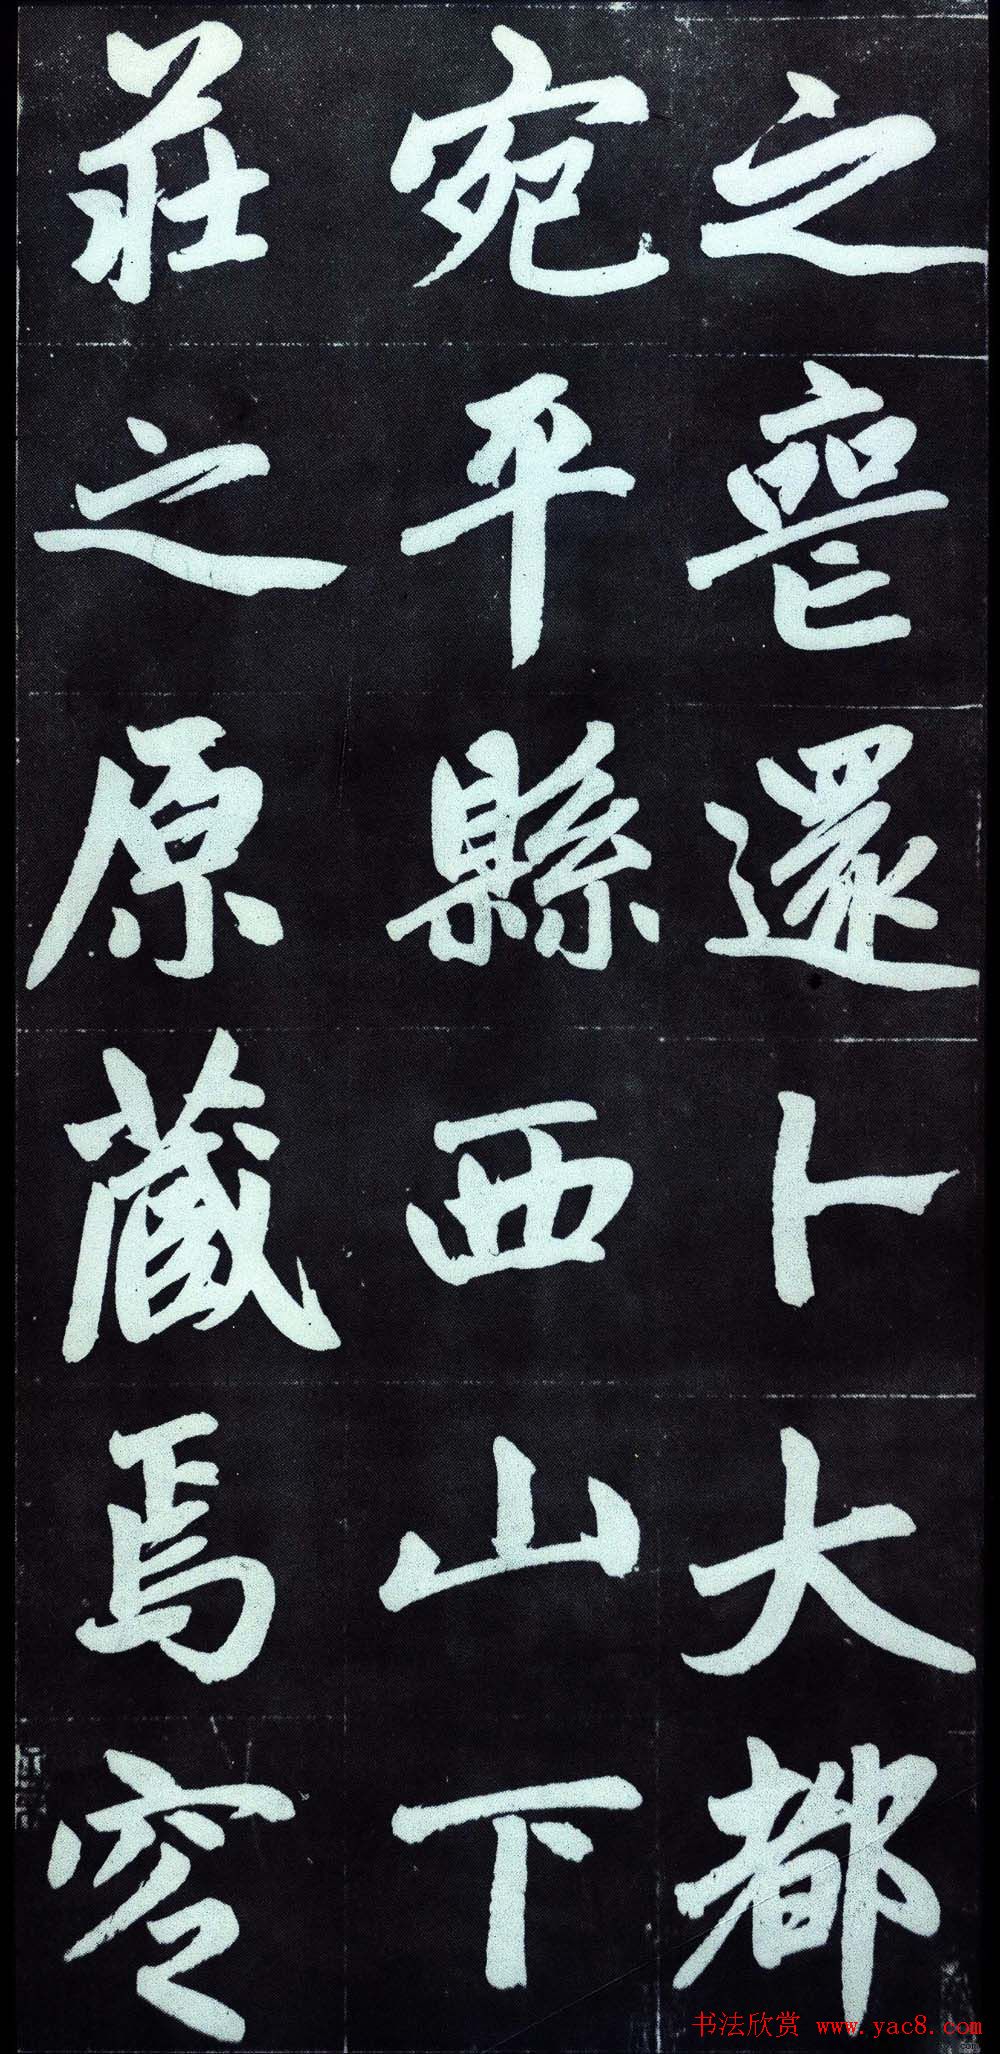 之喪還卜大都
宛平縣西山下
莊之原藏焉空
书法欣赏 www.yac8.com